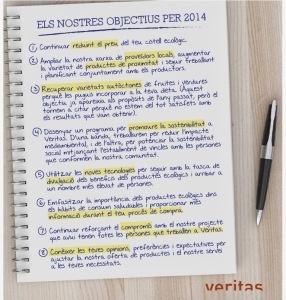 ELS NOSTRES OBJECTIUS PER 2014
1 Continuar reduint el preu del teu cistell ecològic.
2 Ampliar la nostra xarxa de proveïdors locals, augmentar
la varietat de productes de proximitat i seguir treballant
i planificant conjuntament amb els productors.
3 Recuperar varietats autòctones de fruites i verdures
perquè les puguis incorporar a la teva dieta. (Aquest
objectiu ja apareixia als propòsits de l'any passat, però el
tornem a citar perquè no estem del tot satisfets amb
els resultats que vam obtenir).
4 Dissenyar un programa per promoure la sostenibilitat a
Veritas. D'una banda, treballarem per reduir l'impacte
mediambiental, i de l'altra, per potenciar la sostenibilitat
social mitjançant l'establiment de vincles amb les persones
que conformen la nostra comunitat.
5 Utilitzar les noves tecnologies per seguir amb la tasca de
divulgació dels beneficis dels productes ecològics i arribar a
un nombre més elevat de persones.
6 Emfasitzar la importància dels productes ecològics dins
els hàbits de consum saludables i proporcionar més
informació durant el teu procés de compra.
7 Continuar reforçant el compromís amb el nostre projecte
que avui tenen totes les persones que treballen a Veritas.
8 Conèixer les teves opinions, preferències i expectatives per
ajustar la nostra oferta de productes i el nostre servei
a les teves necessitats.
veritas